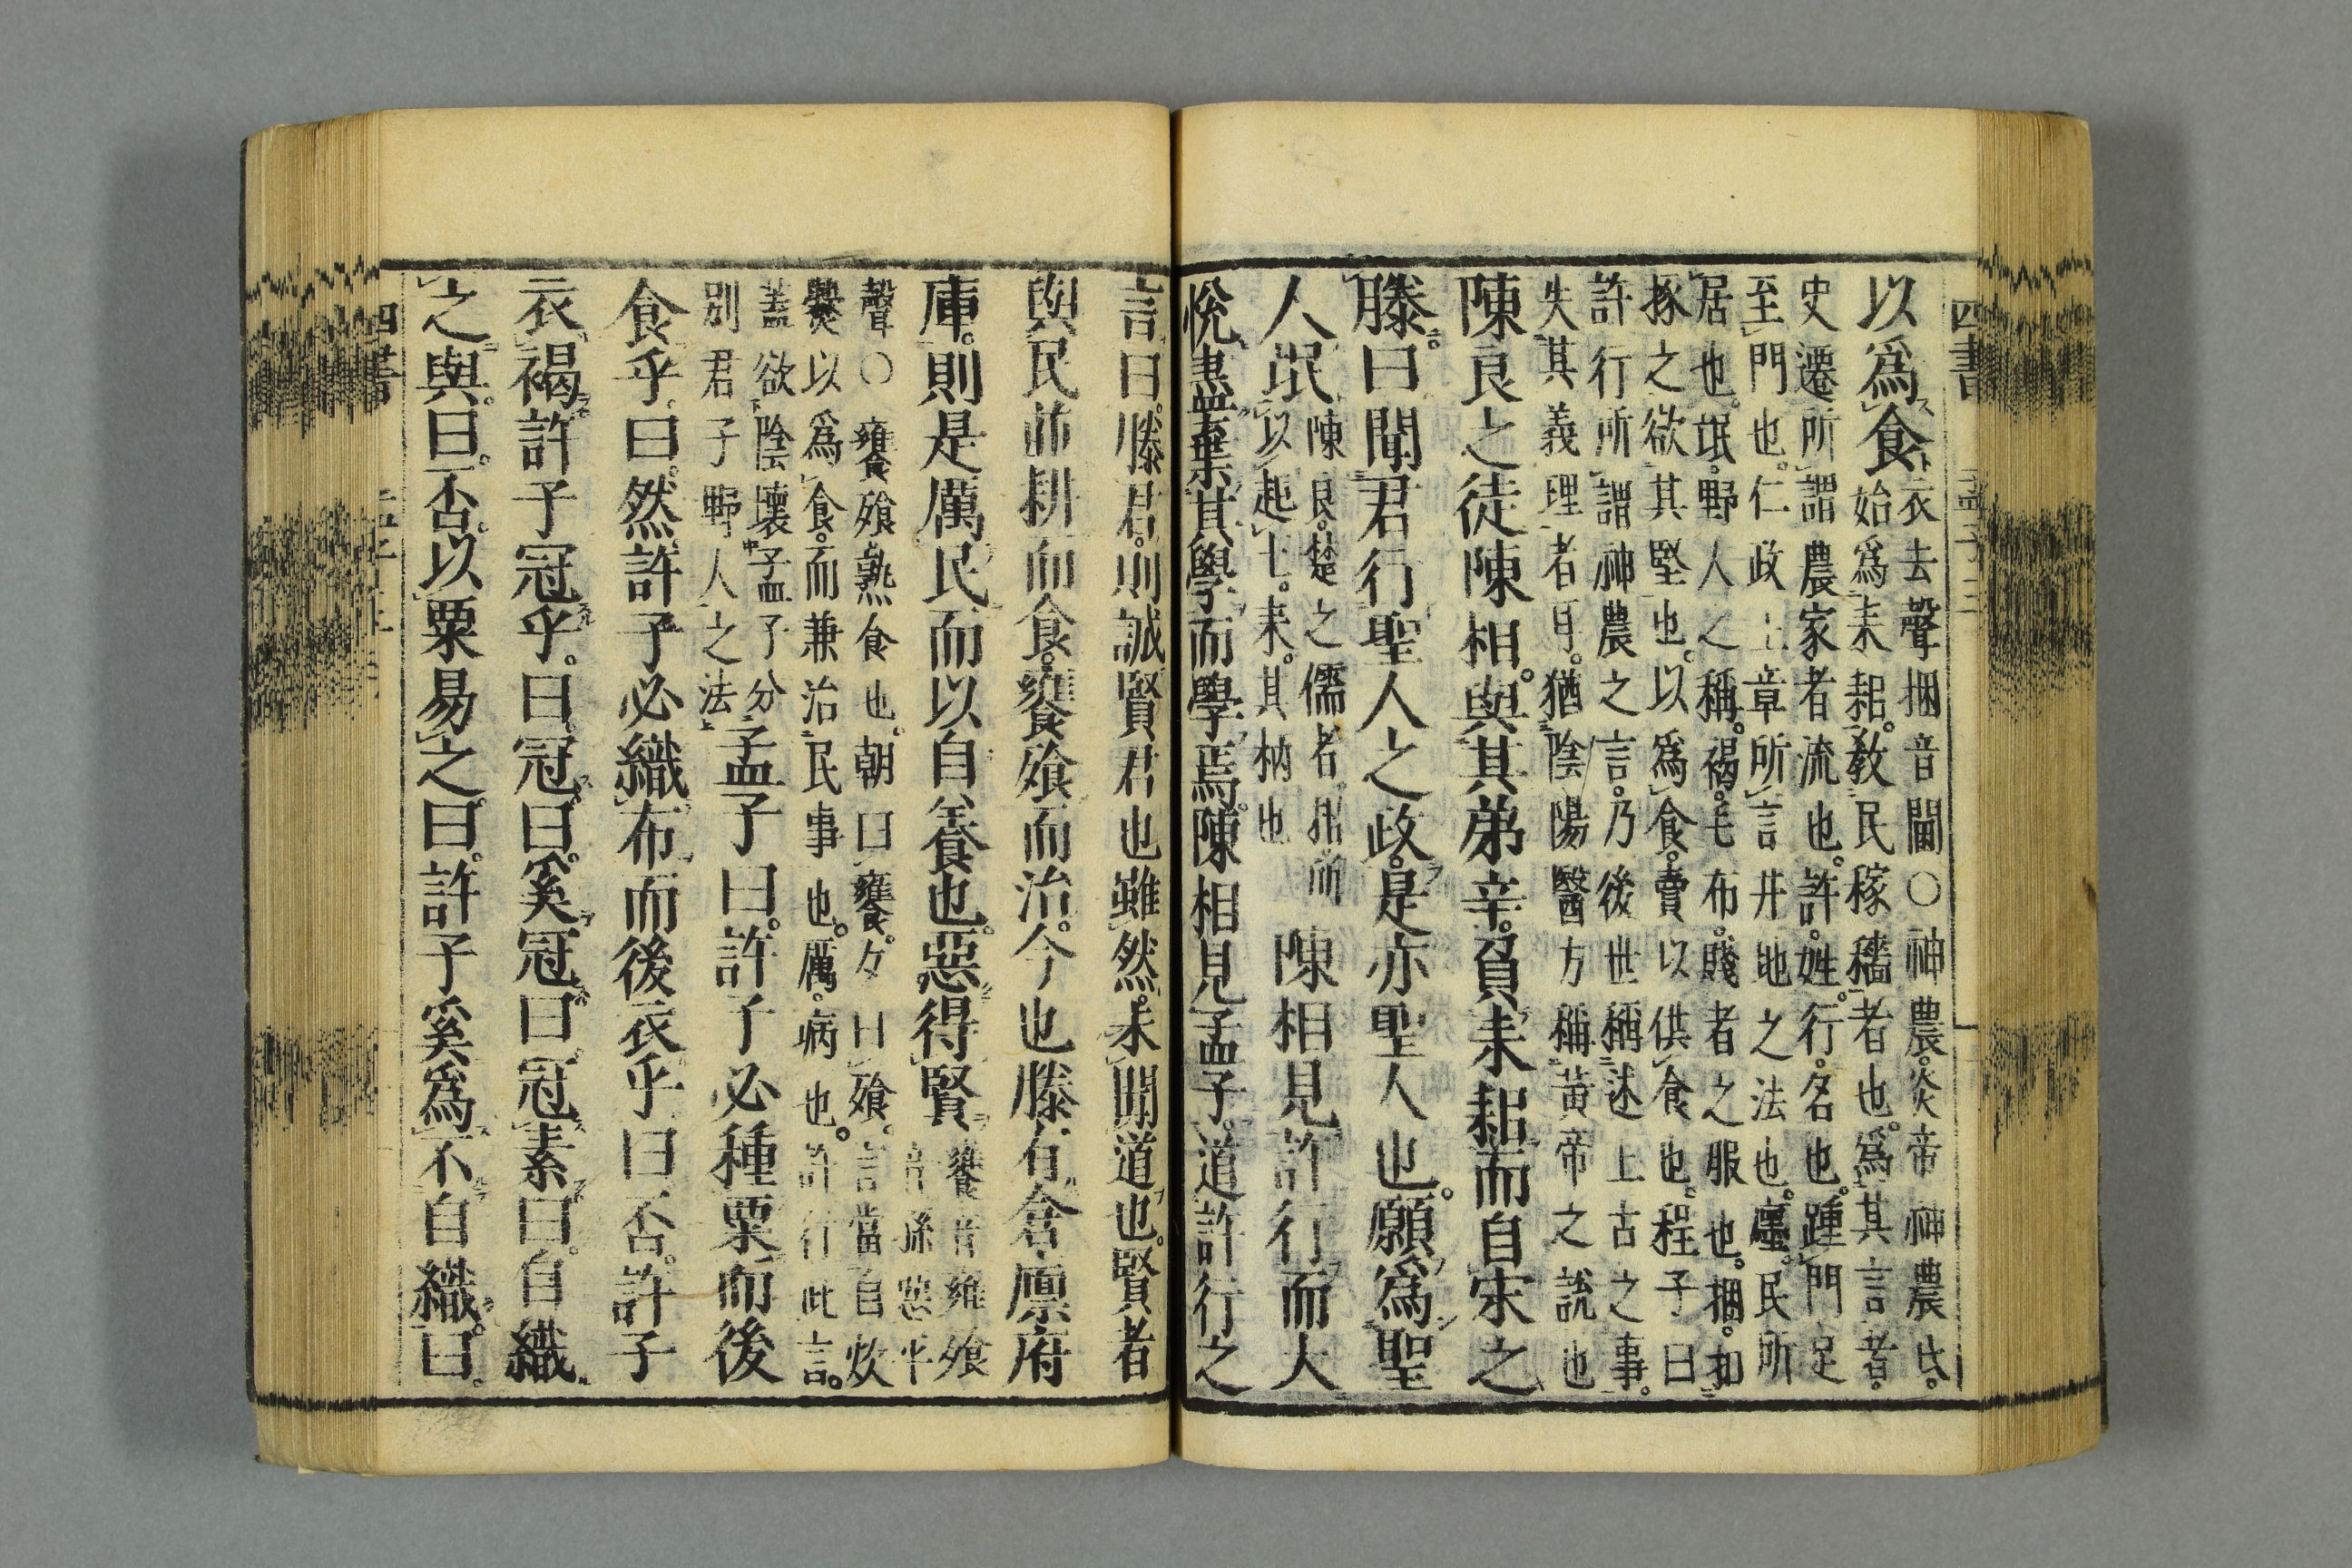 四書
孟子三
以爲食衣去聲捆音閫○神農炎帝神農氏
始爲耒耜敎民稼穡者也爲其言者
史遷所謂農家者流也許姓行名也踵門足
至門也仁政上章所言井地之法也廛民所
居也氓野人之稱褐毛布賤者之服也捆扣
㧻之欲其堅也以爲食賣以供食也程子曰
許行所謂神農之言乃後世稱述上古之事
失其義理者耳猶陰陽醫方稱黃帝之說也
陳良之徒陳相與其弟辛負耒耜而自宋之
滕曰聞君行聖人之政是亦聖人也願爲聖
人氓陳良楚之儒者耜所
以起土耒其柄也
陳相見許行而大
悅盡棄其學而學焉陳相見孟子道許行之
言曰滕君則誠賢君也雖然未聞道也賢者
與民並耕而食饔飧而治今也滕有倉廩府
庫則是厲民而以自養也惡得賢饔音雍飧
音孫惡平
聲○饔飧熟食也朝曰饔夕曰飧言當自炊
爨以爲食而兼治民事也厲病也許行此言
蓋欲陰壞孟子分
別君子野人之法
孟子曰許子必種粟而後
食乎曰然許子必織布而後衣乎曰否許子
衣褐許子冠乎曰冠曰奚冠曰冠素曰自織
之與曰否以粟易之曰許子奚爲不自織曰
四書